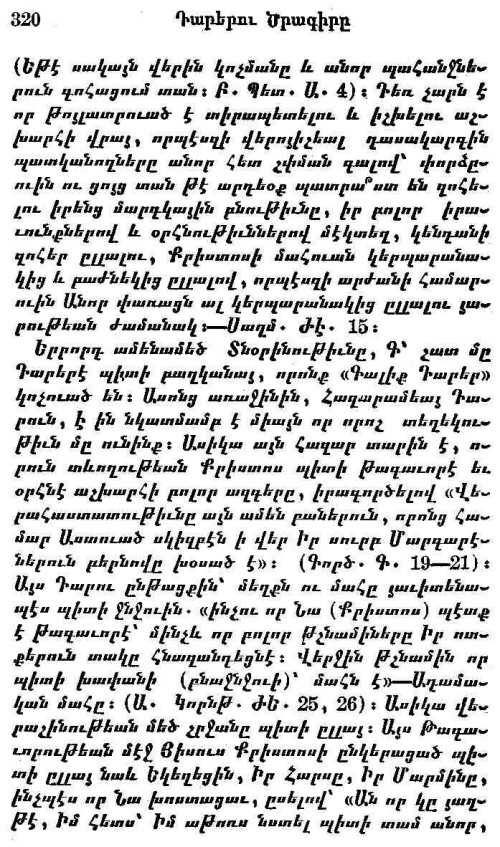 320 Դարերու Ծրագիրը
(Եթէ սակայն վերին կոչմանը և անոր պահանջնե-
րուն գոհացում տան։ Բ. Պետ. Ա. 4)։ Դեռ չարն է
որ թոյլատրուած է տիրապետելու և իշխելու աշ-
խարհի վրայ, որպէսզի վերոյիշեալ դասակարգին
պատկանողները անոր հետ շփման գալով՝ փորձը-
ուին ու ցոյց տան թէ արդեօք պատրա՞ստ են զոհե-
լու իրենց մարդկային բնութիւնը, իր բոլոր իրա-
ւունքներով և օրհնութիւններով մէկտեղ, կենդանի
զոհեր ըլլալու, Քրիստոսի մահուան կերպարանա-
կից և բաժնեկից ըլլալով, որպէսզի արժանի համար-
ուին Անոր փառացն ալ կերպարանակից ըլլալու յա-
րութեան ժամանակ։—Սաղմ. ԺԷ. 15։
Երրորդ ամենամեծ Տնօրինութիւնը, Գ՝ շատ մը
Դարերէ պիտի բաղկանայ, որոնք «Գալիք Դարեր»
կոչուած են։ Ասոնց առաջինին, Հազարամեայ Դա-
րուն, է ին նկատմամբ է միայն որ որոշ տեղեկու-
թիւն մը ունինք։ Ասիկա այն հազար տարին է, ո-
րուն տևողութեան Քրիստոս պիտի թագաւորէ եւ
օրհնէ աշխարհի բոլոր ազգերը, իրագործելով «Վե-
րահաստատութիւնը այն ամեն բաներուն, որոնց հա-
մար Աստուած սկիզբէն ի վեր Իր սուրբ Մարգարէ-
ներուն բերնովը խօսած է»։ (Գործ. Գ. 19—21)։
Այս Դարու ընթացքին՝ մեղքն ու մահը յաւիտենա-
պէս պիտի ջնջուին. «ինչու որ Նա (Քրիստոս) պէտք
է թագաւորէ՝ մինչև որ բոլոր թշնամիները Իր ոտ-
քերուն տակը հնազանդեցնէ։ Վերջին թշնամին որ
պիտի խափանի (բնաջնջուի)՝ մահն է»—Ադամա-
կան մահը։ (Ա. Կորնթ. ԺԵ. 25, 26)։ Ասիկա վե-
րաշինութեան մեծ շրջանը պիտի ըլլայ։ Այս Թագա-
ւորութեան մէջ Յիսուս Քրիստոսի ընկերացած պի-
տի ըլլայ նաև Եկեղեցին, Իր Հարսը, Իր Մարմինը,
ինչպէս որ Նա խոստացաւ, ըսելով՝ «Ան որ կը յաղ-
թէ, Իմ հետս՝ Իմ աթոռս նստել պիտի տամ անոր,